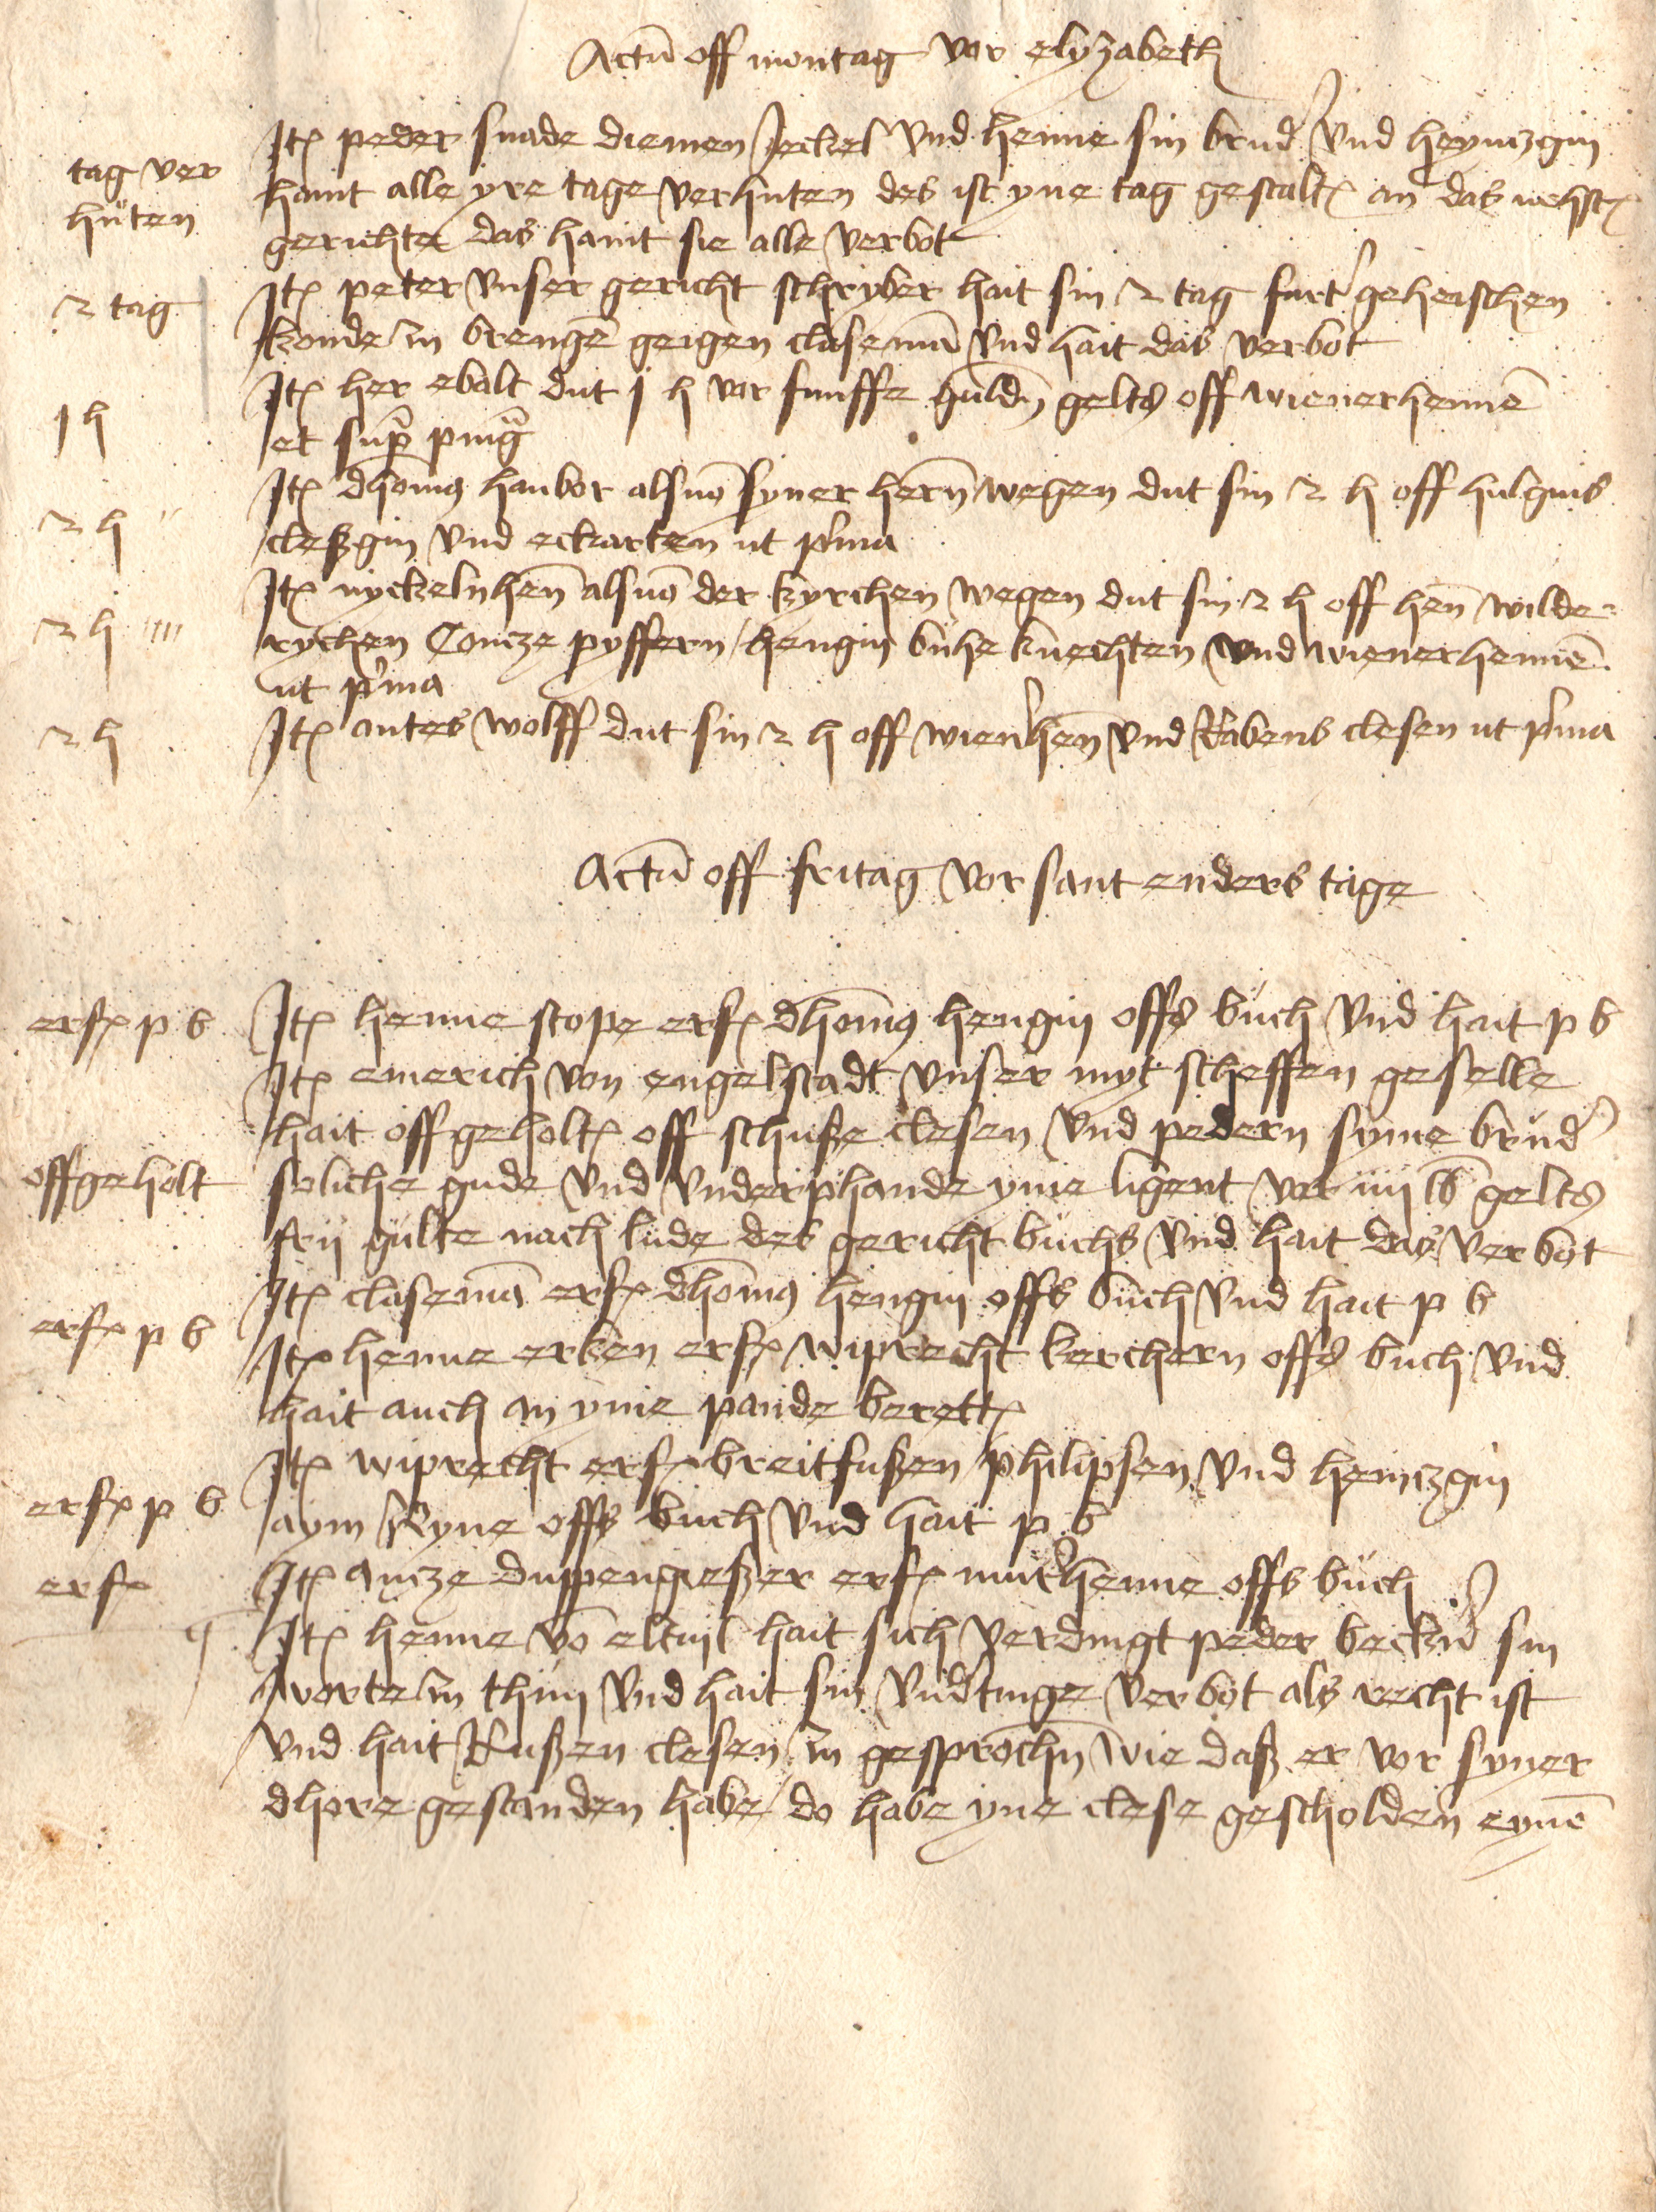 Actū off montag vor elyzabeth
tag ver
hüten
Itꝫ peder snade diemen Jeckel vnd henne sin brud' vnd heynczgin
haint alle yre tage verhuten des ist yne tag gestaltꝫ an das nehstꝫ
gerichte das haint sie alle verbot
2 tag
Itꝫ peter vnser gericht schryber hait sin 2 tag furt' geheischen
konde zu brengē geigen clasemā vnd hait das verbot
1 h
Itꝫ her ebalt dut j h vor funffe guldn̄ gelts off wienerhennē
et sup̄ pīnḡ
2 h "
Itꝫ dhom̄ꝰ hanbor als vō syner hern̄ wegen dut sin 2 h off hulgins
cleßgin vnd eckarten ut p'ma
2 h ıııı
Itꝫ nyckelnhen̄ als vō der kyrchen wegen dut sin 2 h off hen̄ wilde
rychen Concze pyffern hengin buhe knechten vnd wienerhennē
ut p'ma
2 h
Itꝫ antes wolff dut sin 2 h off wien'hen̄ vnd Rabens clesen ut p'ma
Actū off fritag vor sant enders tage
erfꝫ p b
Itꝫ henne stope erfꝫ dhom̄ꝰ hengin offs buch vnd hait p b
Itꝫ emerich von engelstadt vnser myt scheffen geselle
hait offgeholtꝫ off schuße clesen vnd pedern syme brud'
offgeholt
soliche gude vnd vnderphande yme ligent vor iiij lb gelts
frij gulte nach lude des gericht buchs vnd hait das verbot
erfꝫ p b
Itꝫ clasemā erfꝫ dhom̄ꝰ hengin offs buch vnd hait p b
Itꝫ henne erken erfꝫ wiprecht kerchern offs buch vnd
hait auch an yme pande berettꝫ
erfꝫ p b
Itꝫ wiprecht erfꝫ breitfußen philipsen vnd heinczgin
aym Ryne offs buch vnd hait p b
erfꝫ
Itꝫ ancze duppengießer erfꝫ mut'henne offs buch
Itꝫ henne vō eltuil hait sich verdingt peder beck'n sin
worte zu thun vnd hait sin vnd'tinge verbot als recht ist
vnd hait Rußen clesen zu gesprochn̄ wie daß er vor syner
dhore gestanden habe do habe yne clese gescholden eynē